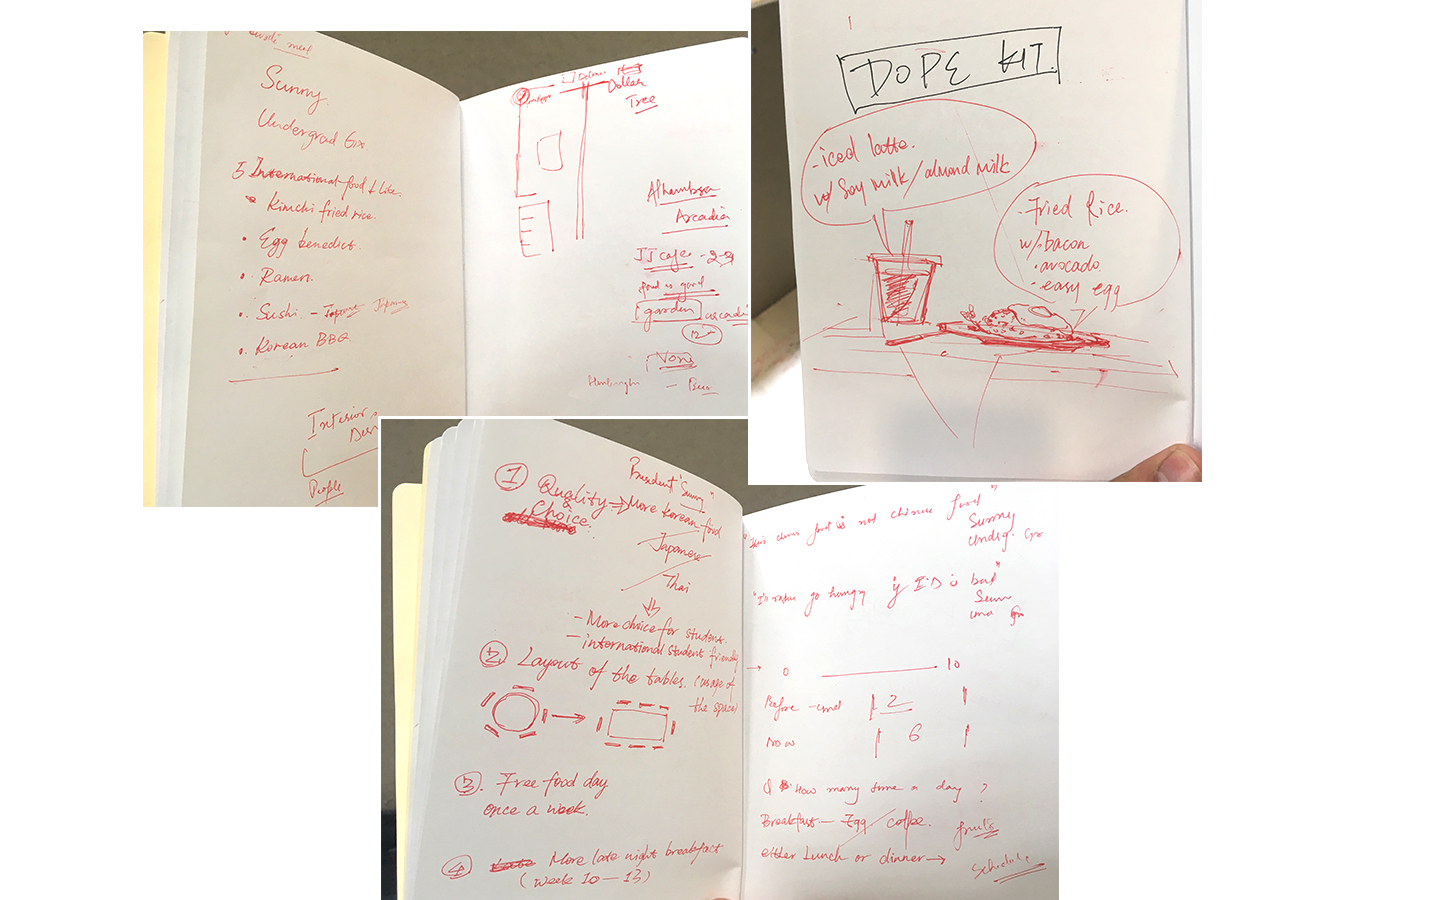 meal
Sunny
Undergrad Gix.
5 International food I like.
• Kimchi fried rice.
• Egg benedict.
• Ramen.
• Sushi. - Japanese
• Korean BBQ
Interior
People
Dollar
Tree
Alhambra
Arcadia
JJ cafe
food is good
garden arcadia
DOPE KIT.
- iced latte.
w/ Soy milk/almond milk
- Fried Rice.
w/ • bacon
• avocado
- easy egg
President "Sunny"
1 Quality ⇒ More Korean food
& Choice.
Japanese
Thai
- More choice for student.
- international student friendly
2. Layout of the tables. (usage of
the space)
3. Free food day
once a week.
4 More late night breakfast
(week 10 - 13)
food is not chinese food"
Sunny
Undrg.
"I'll rather go hungry if is bad"
→ 0 10
Before 2
Now 6
Q How many time a day ?
Breakfast — Egg / coffee. fruits
either Lunch or dinner →
Schedule